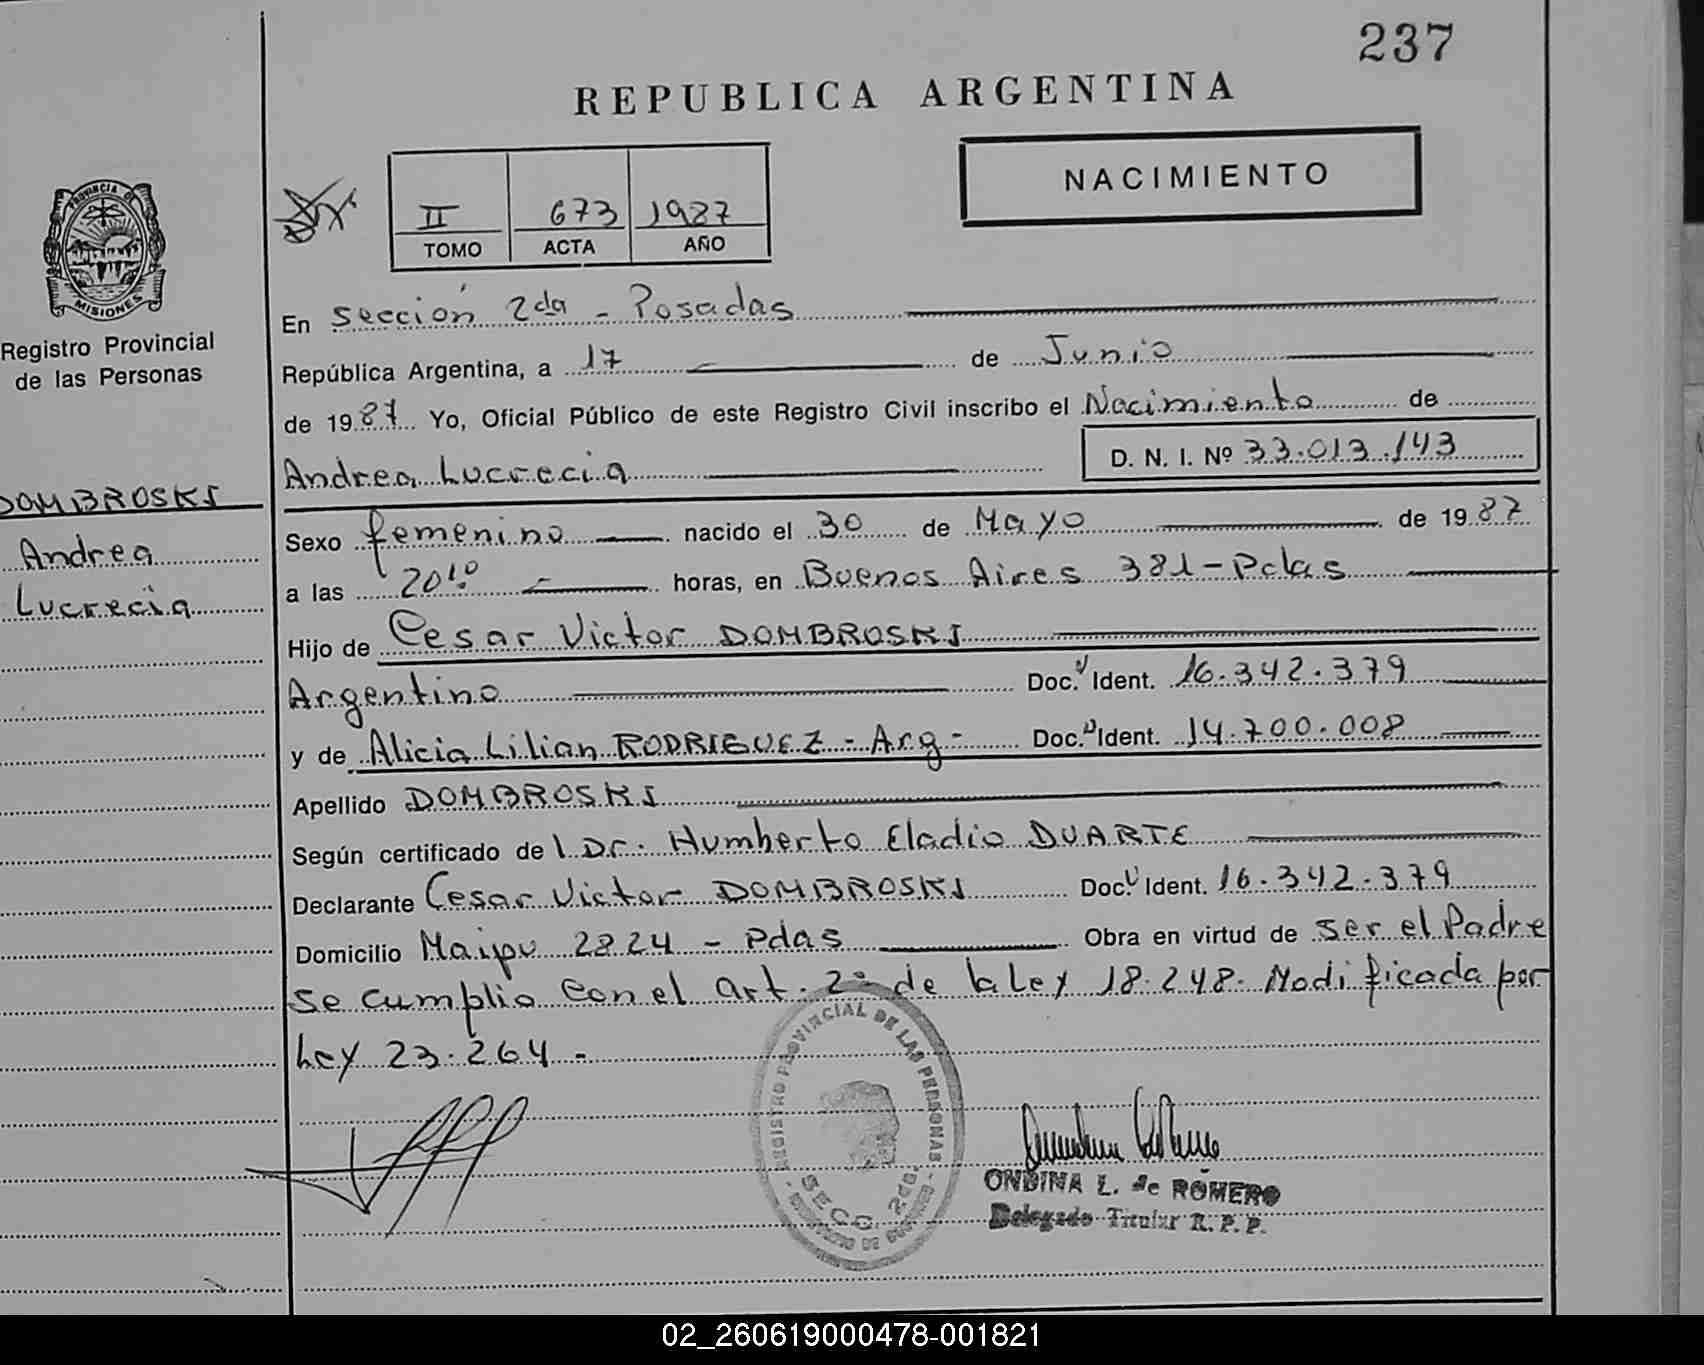 237
REPUBLICA ARGENTINA
NACIMIENTO
II 673 1987
TOMO ACTA AÑO
PROVINCIA DE
MISIONES
Registro Provincial
de las Personas
DOMBROSKI
Andrea
Lucrecia
En Sección 2da - Posadas
República Argentina, a 17 de Junio
de 1987 Yo, Oficial Público de este Registro Civil inscribo el Nacimiento de
Andrea Lucrecia D. N. I. Nº 33.013.143
Sexo femenino nacido el 30 de Mayo de 1987
a las 20¹⁰ horas, en Buenos Aires 381-Pdas
Hijo de Cesar Victor DOMBROSKI
Argentino Doc. Ident. 16.342.379
y de Alicia Lilian RODRIGUEZ - Arg - Doc. Ident. 14.700.008
Apellido DOMBROSKI
Según certificado de l Dr. Humberto Eladio DUARTE
Declarante Cesar Victor DOMBROSKI Doc. Ident. 16.342.379
Domicilio Maipu 2824 - Pdas Obra en virtud de ser el Padre
se cumplio con el art. 2º de la Ley 18.248. Modificada por
Ley 23.264 -
REGISTRO PROVINCIAL DE LAS PERSONAS
SECC. 2da.
ONDINA L. de ROMERO
Delegado Titular R. P. P.
02_260619000478-001821